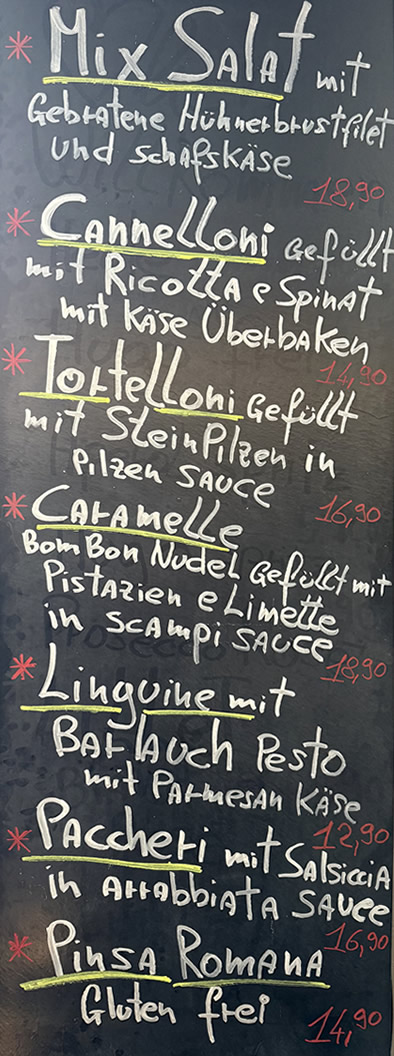 * Mix Salat mit
Gebratene Hühnerbrustfilet
und Schafskäse
18,90
* Cannelloni gefüllt
mit Ricotta e Spinat
mit Käse Überbaken
14,90
* Tortelloni gefüllt
mit SteinPilzen in
Pilzen Sauce
16,90
* Caramelle
BomBon Nudel gefüllt mit
Pistazien e Limette
in Scampi Sauce
18,90
* Linguine mit
Barlauch Pesto
mit Parmesan Käse
12,90
* Paccheri mit Salsiccia
in arrabbiata Sauce
16,90
* Pinsa Romana
Gluten frei
14,90